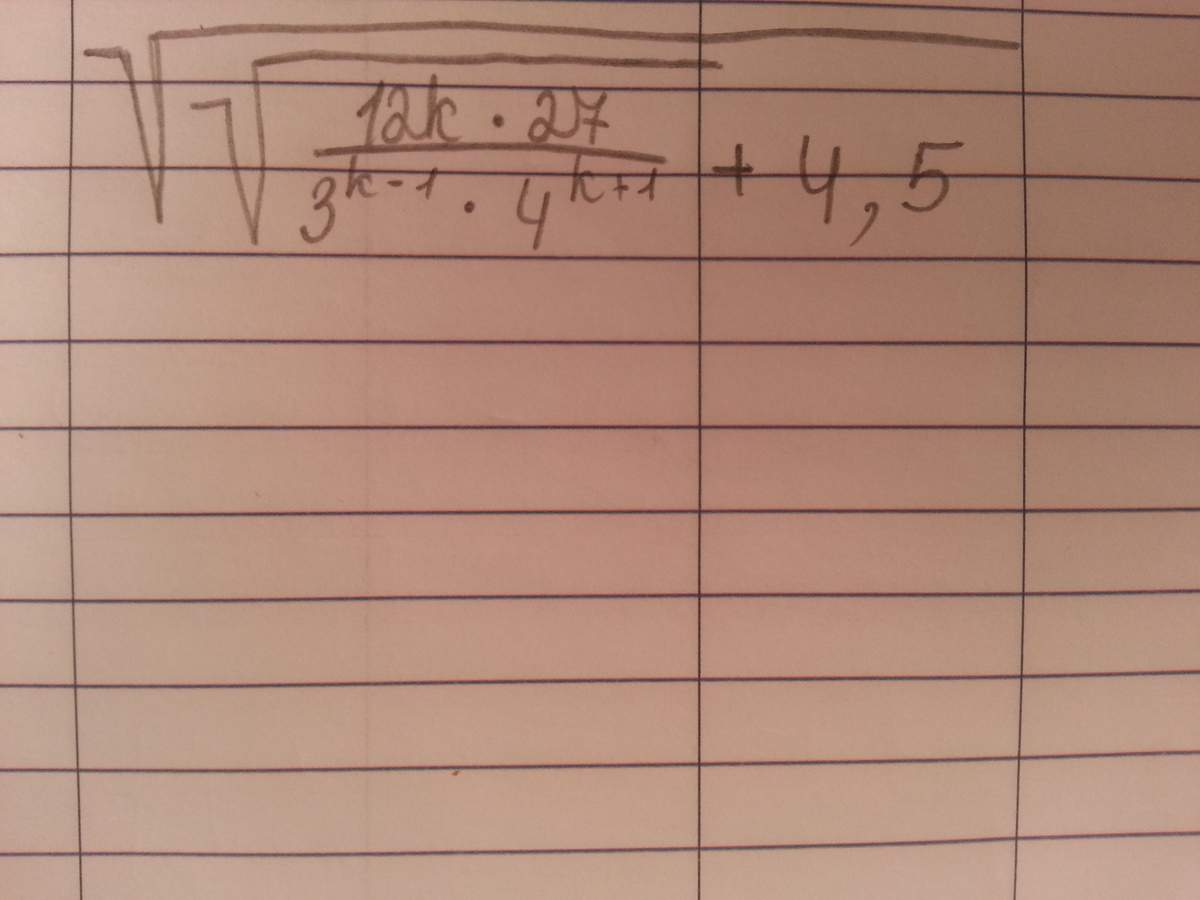 √√12k · 27 / 3^(k-1) · 4^(k+1) + 4,5